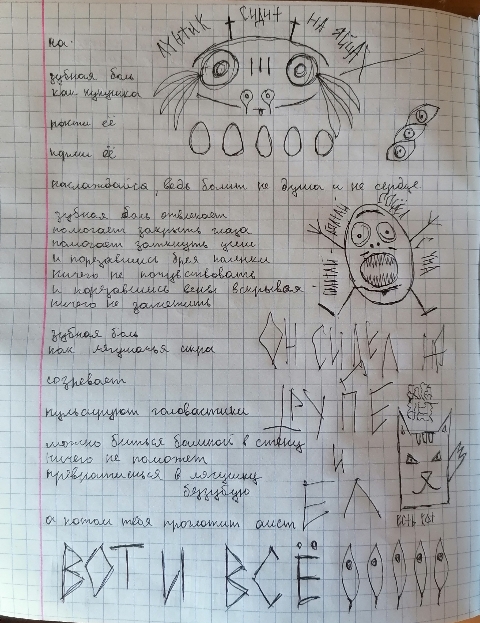 ЛУНТИК СИДИТ НА
на
зубная боль
как кукушка
расти её
корми её
наслаждайся, ведь болит не душа и не сердце
зубная боль отвлекает
помогает закрыть глаза
помогает заткнуть уши
и порезавшись брея коленки
ничего не почувствовать
и порезавшись вены вскрывая
ничего не заметить
зубная боль
как лягушачья икра
созревает
пульсируют головастики
можно биться башкой в стену
ничего не поможет
превратишься в лягушку
беззубую
а потом тебя проглотит аист
ОН СИДЕЛ НА
ТРУПЕ
И
ЕЛ
ВОТ И ВСЁ